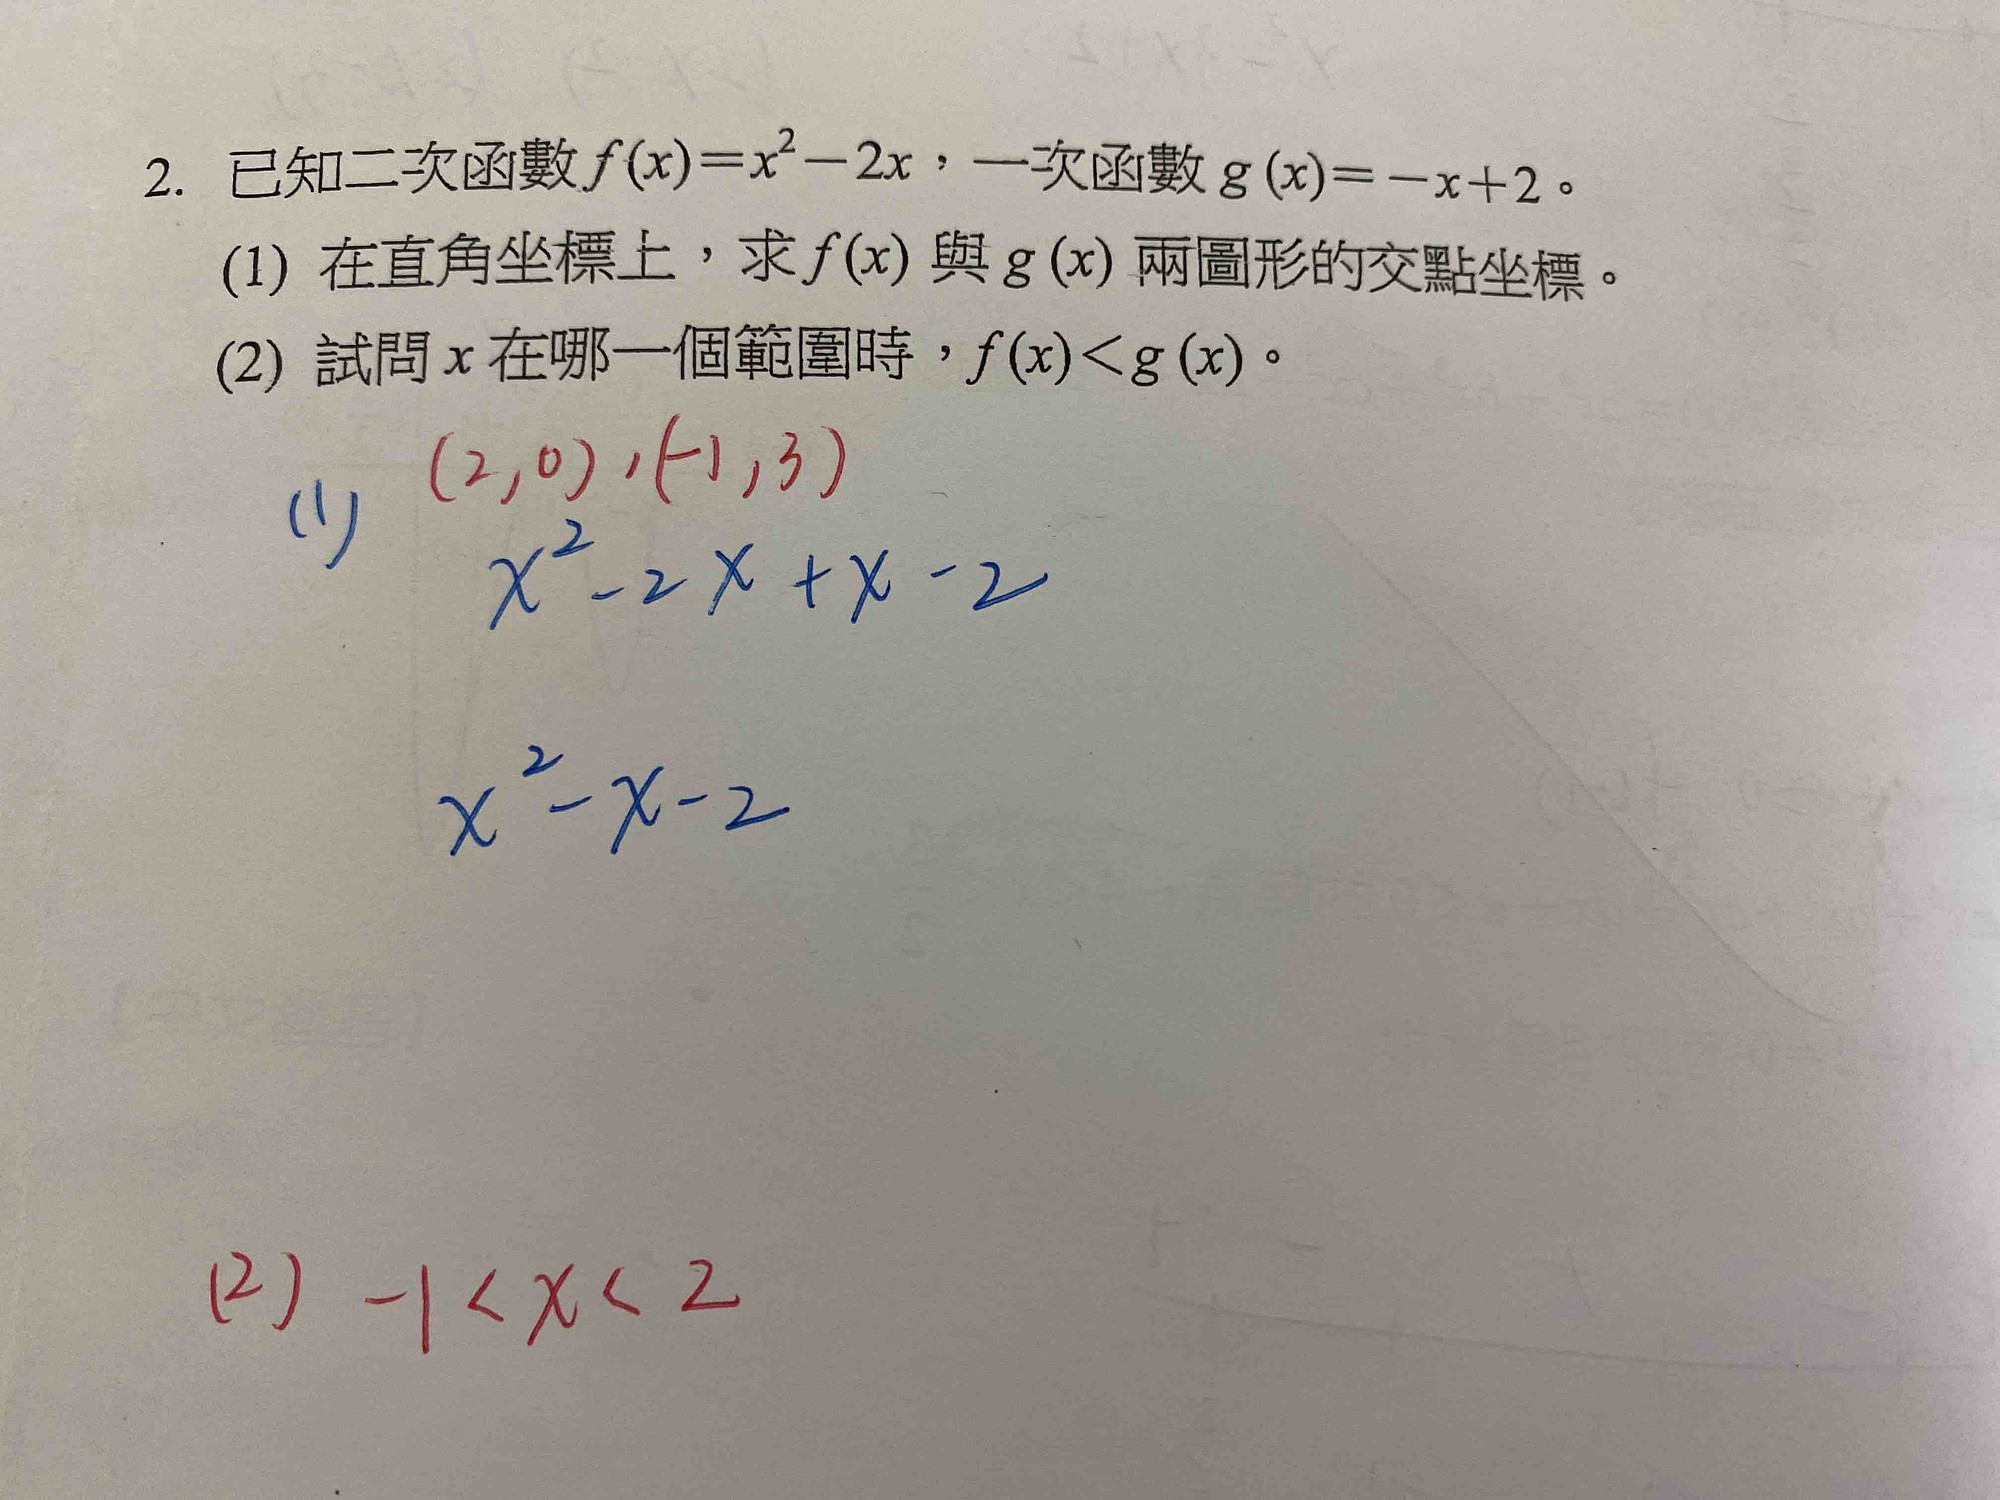 2. 已知二次函數 f(x)=x²−2x，一次函數 g(x)=−x+2。
(1) 在直角坐標上，求 f(x) 與 g(x) 兩圖形的交點坐標。
(2) 試問 x 在哪一個範圍時，f(x)<g(x)。
(2,0),(-1,3)
(1)
x²-2x+x-2
x²-x-2
(2) -1<x<2